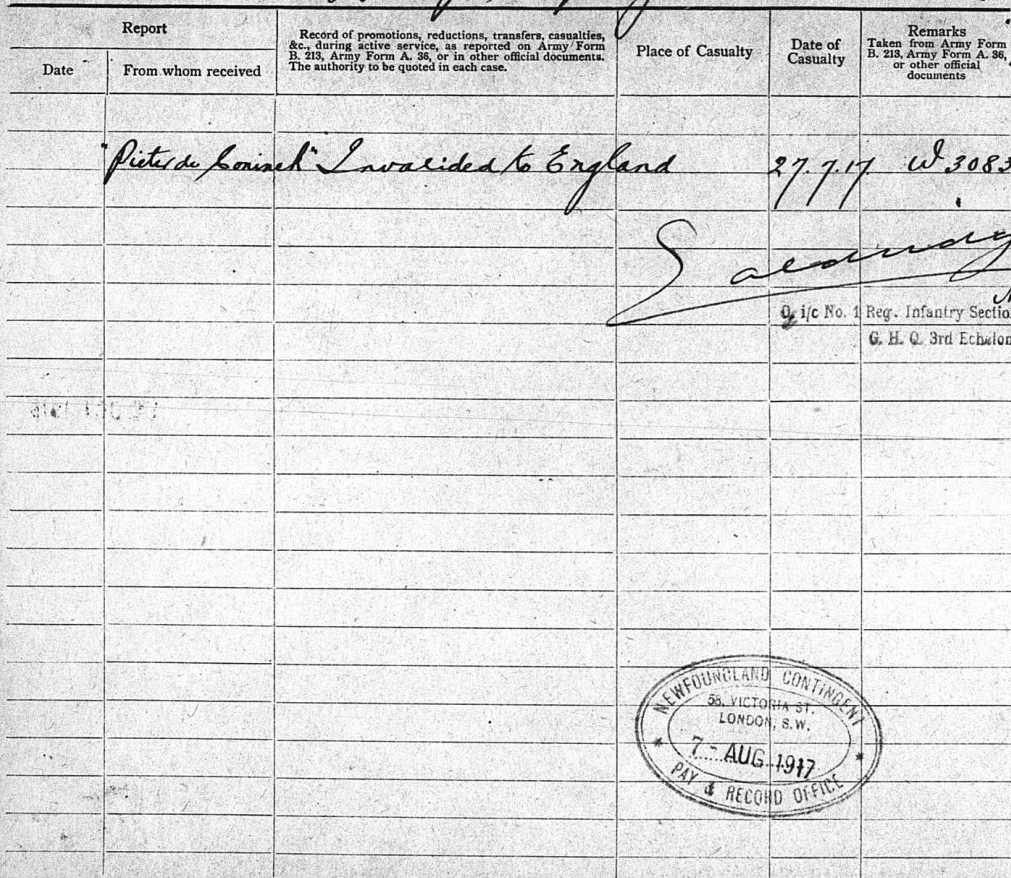 Report
Date
From whom received
Record of promotions, reductions, transfers, casualties,
&c., during active service, as reported on Army Form
B. 213, Army Form A. 36, or in other official documents.
The authority to be quoted in each case.
Place of Casualty
Date of
Casualty
Remarks
Taken from Army Form
B. 213, Army Form A. 36,
or other official
documents
"Pieter de Coninck" Invalided to England 27.7.17 W 3083
i/c No. 1 Reg. Infantry Sectio
G. H. Q. 3rd Echelon
NEWFOUNDLAND CONTINGENT
58, VICTORIA ST.
LONDON, S.W.
7 - AUG 1917
PAY & RECORD OFFICE